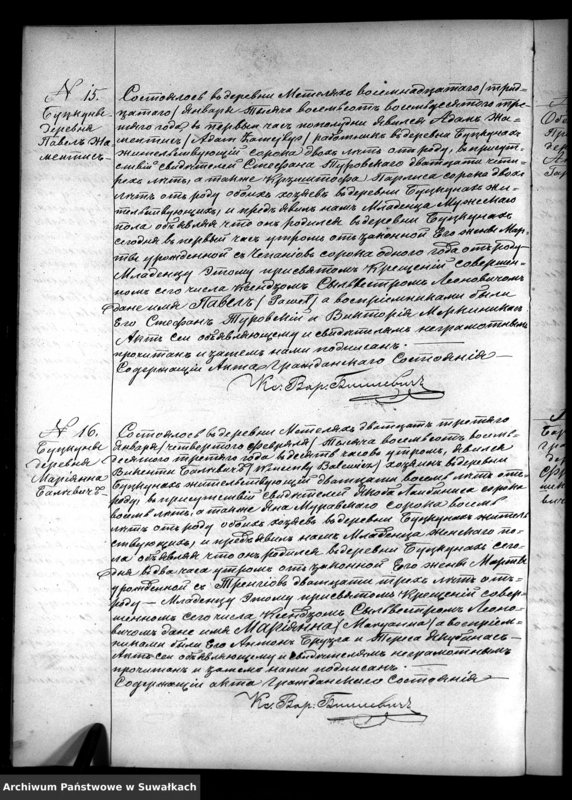 N 15.
Буцкуне
деревня
Павелъ Жа-
ментисъ
Состоялось в деревни Метеляхъ восемнадцатаго / трид-
цатаго / Января тысяча восемьсотъ восемьдесятого тре-
тяго года въ первый часъ пополудни явился Адамъ Жа-
ментисъ / Adam / работникъ въ деревни Буцкунахъ
жительствующій сорока двохъ лѣтъ отъ роду, въ присут-
ствіи свидѣтелей Стефана Туровскаго двадцати четы-
рехъ лѣтъ, а также Крыштофа сорока двохъ
лѣтъ отъ роду обоихъ хозяевъ въ деревни Буцкунахъ жи-
тельствующихъ, и предъявилъ намъ Младенца Мужескаго
пола объявляя что онъ родился въ деревни Буцкунахъ
сегодня въ первый часъ утромъ отъ законной Его жены Мар-
ты урожденной съ сорока одного года отъ роду
Младенцу Этому при святомъ Крещеніи совершен-
номъ сего числа Ксендзомъ Сыльвестромъ Леоновичомъ
дано имя Павелъ / Paweł / а воспріемниками были
Его Стефанъ Туровскій и Викторія
Актъ сей объявляющему и свидѣтелямъ неграмотнымъ
прочитанъ и затемъ нами подписанъ. —
Содержащій Акта Гражданскаго Состоянія —
Кс. Вар.
N 16.
Буцкуне
деревня
Маріянна
Балкевичъ
Состоялось в деревни Метеляхъ двадцать третяго
Января / четвертого Февраля / тысяча восемьсотъ восемь-
десятого третяго года въ десять часовъ утромъ, явился
Викенты Балкевичъ / Wincenty / хозяинъ въ деревни
Буцкунахъ жительствующій двадцати восемь лѣтъ отъ
роду, въ присутствіи свидѣтелей Якоба сорока
восемь лѣтъ, а также Яна Муравскаго сорока восемь
лѣтъ отъ роду обоихъ хозяевъ въ деревни Буцкунахъ житель-
ствующихъ, и предъявилъ намъ Младенца женскаго по-
ла объявляя что онъ родился въ деревни Буцкунахъ сего-
дня въ два часа утромъ отъ законной Его жены Марты
урожденной съ двадцати трехъ лѣтъ отъ
роду — Младенцу Этому при святомъ Крещеніи совер-
шенномъ сего числа Ксендзомъ Сыльвестромъ Леоно-
вичомъ дано имя Маріянна / Maryanna / а воспріем-
никами были Его Антонъ и Тереса
Актъ сей объявляющему и свидѣтелямъ неграмотнымъ
прочитанъ и затемъ нами подписанъ. —
Содержащій акта Гражданскаго Состоянія —
Кс. Вар.
Archiwum Państwowe w Suwałkach